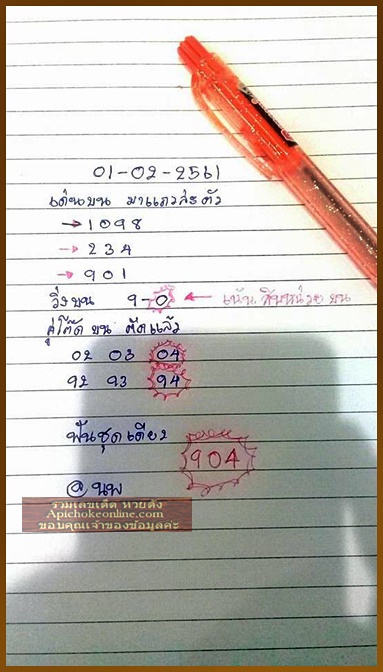 01-02-2561
เด่นบน มาแถวละตัว
→ 1098
→ 234
→ 901
วิ่งบน 9-0 ← เน้น สิบหน่วย บน
คู่โต๊ด บน คัดแล้ว
02 03 04
92 93 94
ฟันชุดเดียว
904
@นพ
รวมเลขเด็ด หวยดัง
Apichokeonline.com
ขอบคุณเจ้าของข้อมูลค่ะ